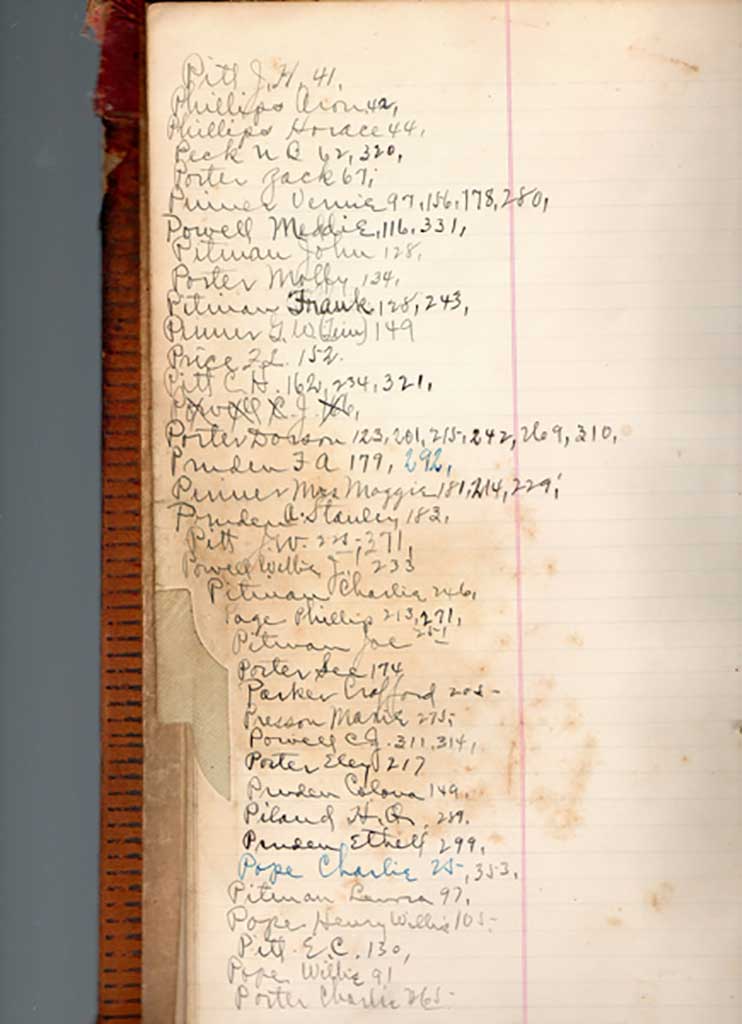 Pitt J. H. 41,
Phillips Acon 42,
Phillips Horace 44,
Peck N C 62, 320,
Porter Zack 67,
Pinner Vernie 97, 156, 178, 280,
Powell Meddie, 116, 331,
Pitman John 128,
Porter Molly 134,
Pitman Frank 128, 243,
Pinner J. W (Jim) 149
Price 152.
Pitt C. H. 162, 234, 321,
Powell C. J.
Porter Dorson 123, 201, 215, 242, 269, 310,
Pruden F A 179, 292,
Pinner Mrs Maggie 181, 214, 229,
Pruden A. Stanley 182,
Pitt J. W. 225, 271,
Powell Willie J., 233
Pitman Charlie 246,
Page Phillip 213, 271,
Pitman Joe 251
Porter Lee 174
Parker Crafford 205
Presson Marie 275,
Powell C. J. 311, 314,
Porter Eley 217
Pruden Colona 149,
Piland H. Q. 289.
Pruden Ethell 299,
Pope Charlie 25, 353,
Pitman 97,
Pope Henry Willis 105
Pitt E. C. 130,
Pope Willie 91
Porter Charlie 265